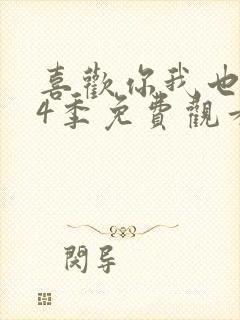 喜歡你我也
4季免費觀
閱导